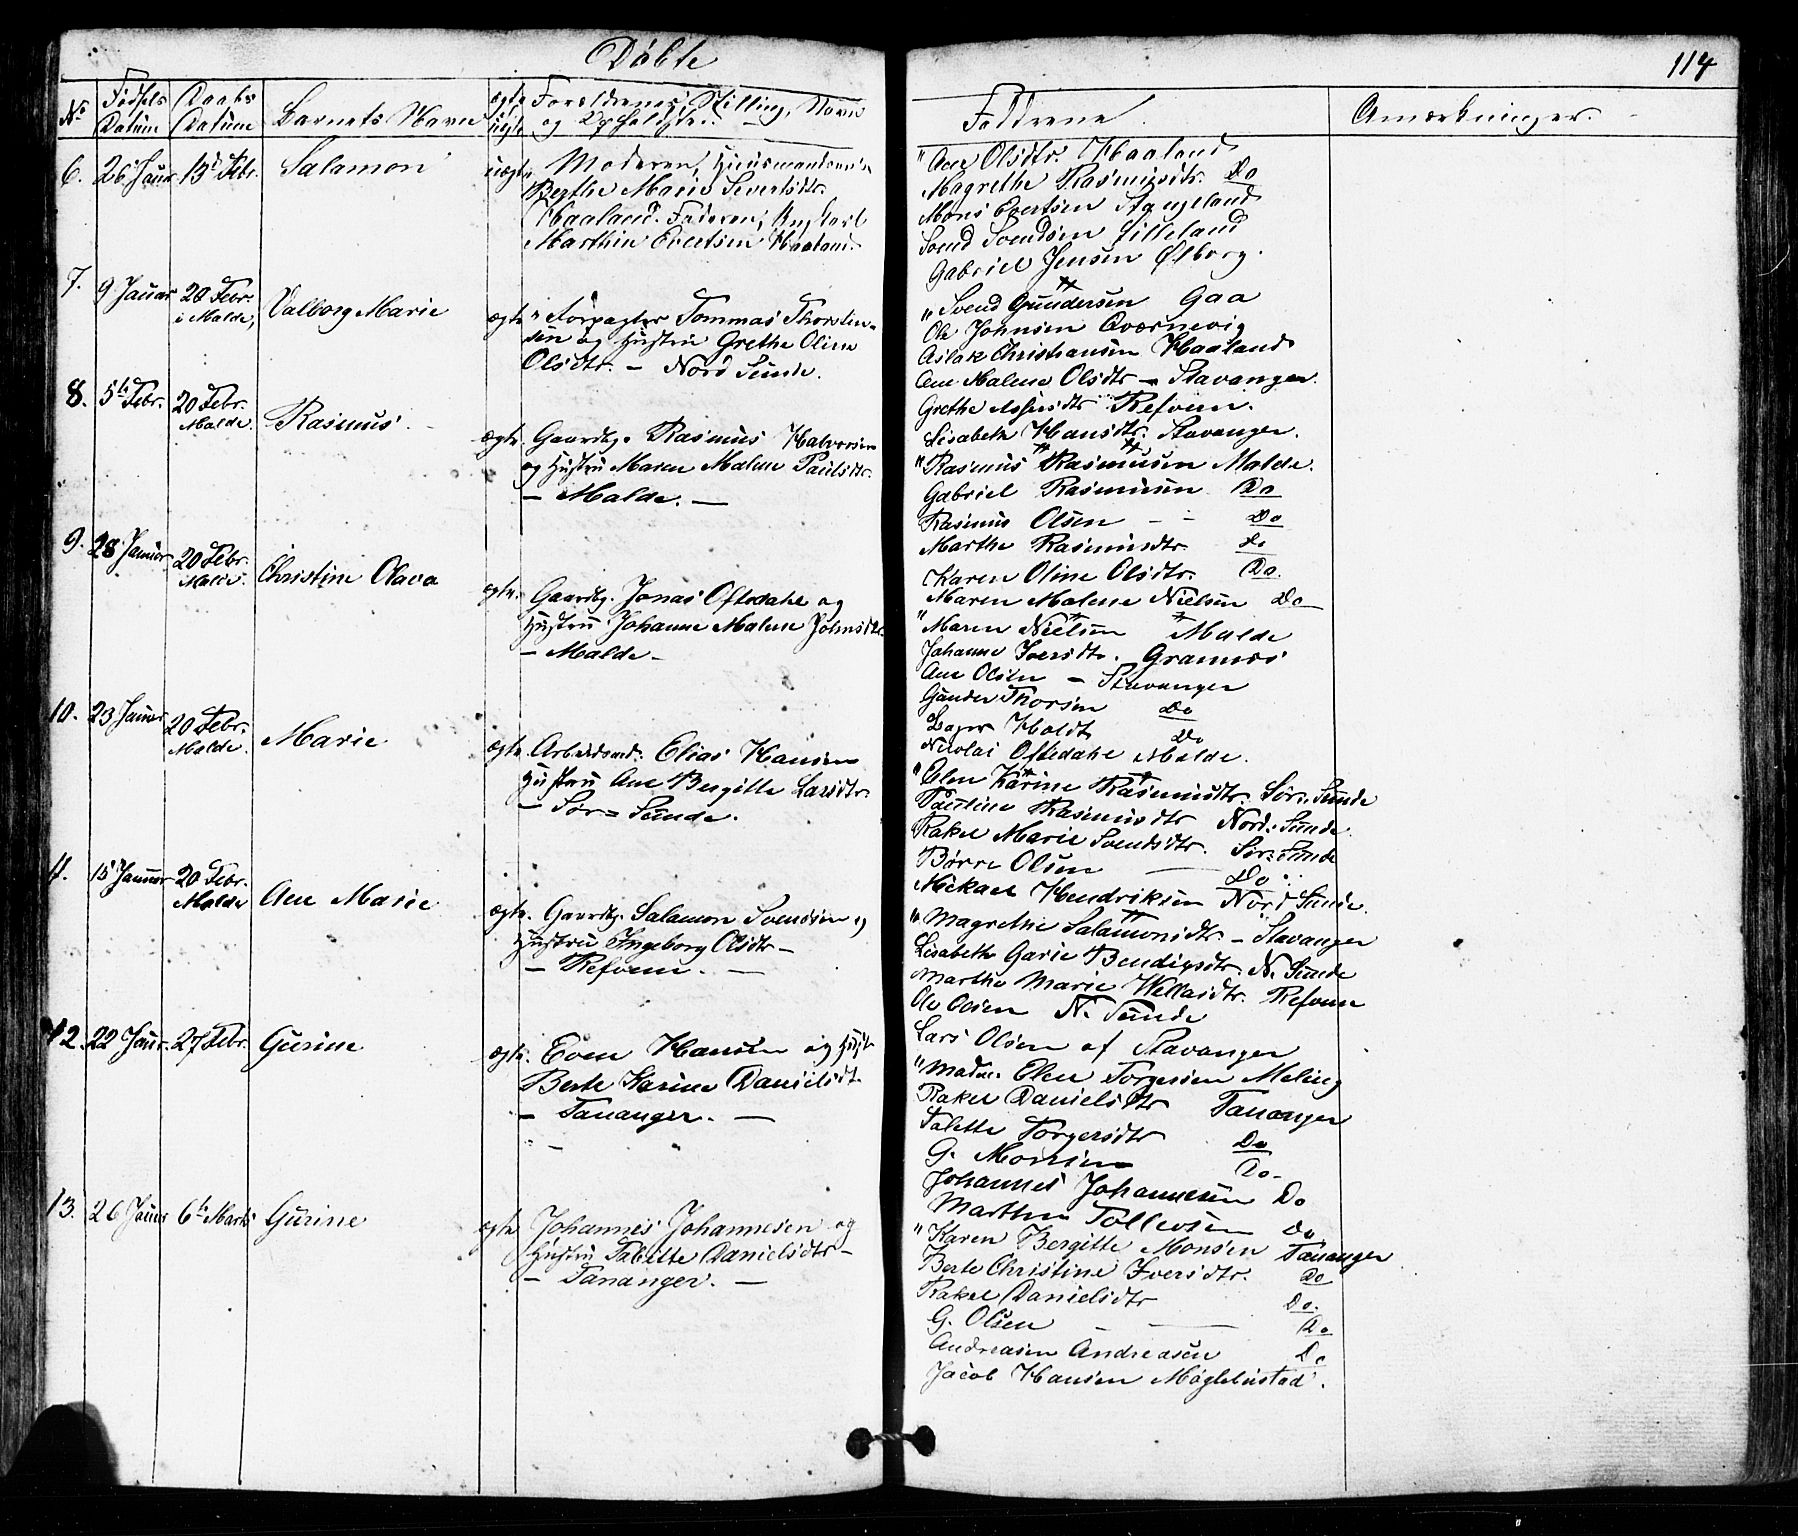 Døbte
114
No
Fødsels Datum
Daabs Datum
Barnets Navn
ægte uægte
Forældrenes Stilling, Navn
og Opholdsted.
Faddrene.
Anmærkninger.
6. 26 Januar 13de Febr. Salamon uægte Moderen, Huusmandsenke
Berthe Marie Severtsdtr.
Haaland. Faderen, Ungkarl
Marthin Evertsen Haaland.
" Ane Olsdtr. Haaland
Magrethe Rasmusdtr. Do
Mons Evertsen Stangeland
Svend Svendsen Lilleland
Gabriel Jensen Ølborg.
7. 9 Januar 20 Febr. i Malde, Valborg Marie ægte "Forpagter Tommas Thorsten-
sen og Hustru Grethe Oline
Olsdtr. – Nord Sunde.
" Svend Gundersen Gaa
Ole Johnsen Qværnevig
Aslak Christiansen Haaland
Ane Malene Olsdtr – Stavanger.
Grethe Refvem.
Lisabeth Hansdtr. Stavanger.
8. 5te Febr. 20 Febr. Malde. Rasmus ægte. Gaardbr. Rasmus Halvorsen
og Hustru Maren Malene Paulsdtr.
– Malde. –
" Rasmus Rasmusen Malde.
Gabriel Rasmusen Do
Rasmus Olsen – – Do
Marthe Rasmusdtr. do
Karen Oline Olsdtr. Do.
Maren Malene Nielsen Do
9. 28 Januar 20 Febr. Malde. Christine Olava ægte. Gaardbr. Jonas Oftedahl og
Hustru Johanne Malene Johnsdtr.
– Malde –
" Maren Nielsen Malde
Johanne Iversdtr. Grannes
Ane Olsen – Stavanger
Gunder Thorsen Do
Holdt Do
Nicolai Oftedahl Malde.
10. 23 Januar 20 Febr. Malde. Marie ægte Arbeidsmd: Elias Hansen
Hustru Ane Bergitte Larsdtr.
– Sør = Sunde.
" Elen Karine Rasmusdtr. Sør: Sunde
Pauline Rasmusdtr Nord: Sunde.
Rakel Marie Svendsdtr. Sør: Sunde
Børre Olsen – Do
Mickael Hendriksen Nord Sunde.
11. 15 Januar 20 Febr. Malde Ane Marie ægte. Gaardbr. Salamon Svendsen og
Hustru Ingeborg Olsdtr –
– Refvem. –
" Magrethe Salamonsdtr – Stavanger
Lisabeth Garie Bendigsdtr. N. Sunde
Marthe Marie Refvem
Ole Olsen N. Sunde
Lars Olsen af Stavanger
12. 22 Januar. 27 Febr. Gurine ægte. Even Hansen og Hust
Berte Karine Danielsdt.
– Tananger. –
" Madm. Elen Torgersen Meling
Rakel Danielsdtr Tananger
Talette Torgersdtr Do
G. Monsen Do –
Johannes Johannesen Do
Marthin Tollevsen Do
13. 26 Januar 6te Marts Gurine ægte Johannes Johannesen og
Hustru Talette Danielsdtr –
– Tananger. –
" Karen Bergitte Monsen Tananger
Berte Christine Iversdtr. Do
Rakel Danielsdtr Do.
G. Olsen – – Do
Andreasen Andreasen Do
Jacob Hansen Møglebustad.